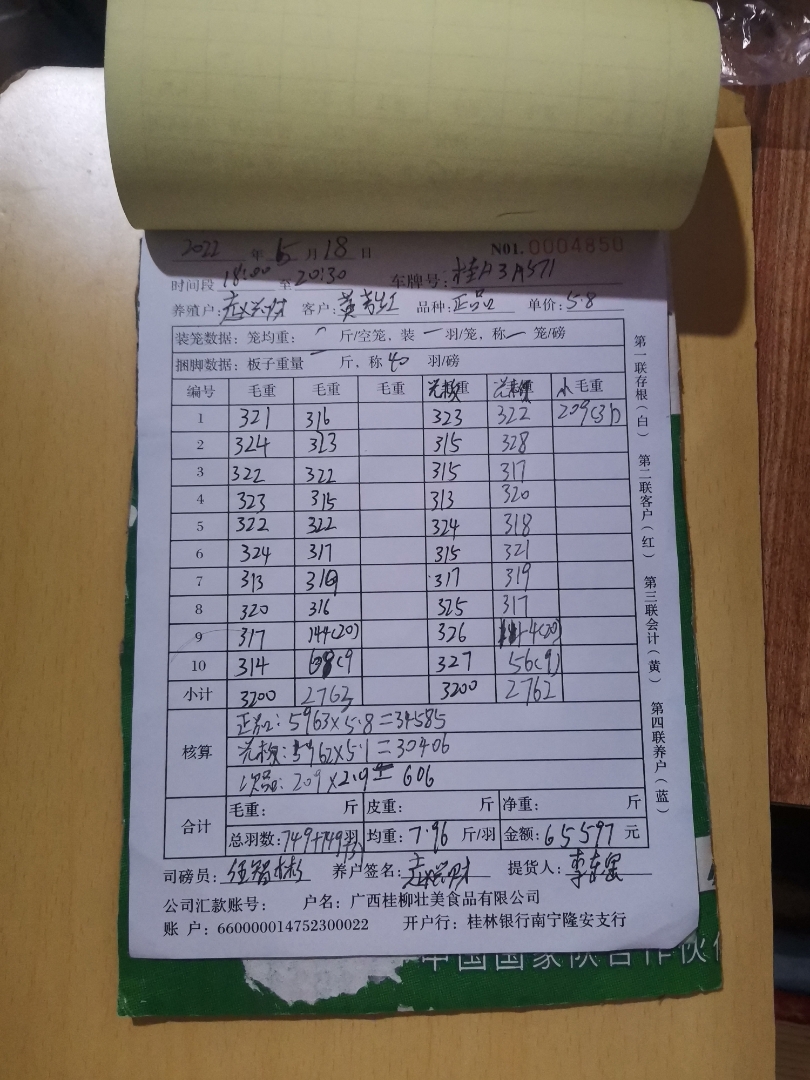 2022 年 5 月 18 日 N01. 0004850
时间段 18:00 至 20:30 车牌号: 桂A3A571
养殖户: 赵兴财 客户: 黄 红 品种: 正品 单价: 5.8
装笼数据: 笼均重: 斤/空笼, 装 一 羽/笼, 称 一 笼/磅
捆脚数据: 板子重量 一 斤, 称 40 羽/磅
编号 毛重 毛重 毛重 光 重 光 重 小 毛重
1 321 316 323 322 209(31)
2 324 313 315 328
3 322 322 315 317
4 323 315 313 320
5 322 322 324 318
6 324 317 315 321
7 313 319 317 319
8 320 316 325 317
9 317 144(20) 326 144(20)
10 314 (9 327 56(9)
小计 3200 2763 3200 2762
核算
正品: 5963×5.8=34585
5962×5.1=30406
次品: 209×2.9= 606
合计
毛重: 斤 皮重: 斤 净重: 斤
总羽数: 749+749羽 均重: 7.96 斤/羽 金额: 65597 元
司磅员: 养户签名: 赵兴财 提货人: 李
公司汇款账号: 户名: 广西桂柳壮美食品有限公司
账 户: 660000014752300022 开户行: 桂林银行南宁隆安支行
第一联存根(白) 第二联客户(红) 第三联会计(黄) 第四联养户(蓝)
中国国家队合作伙伴